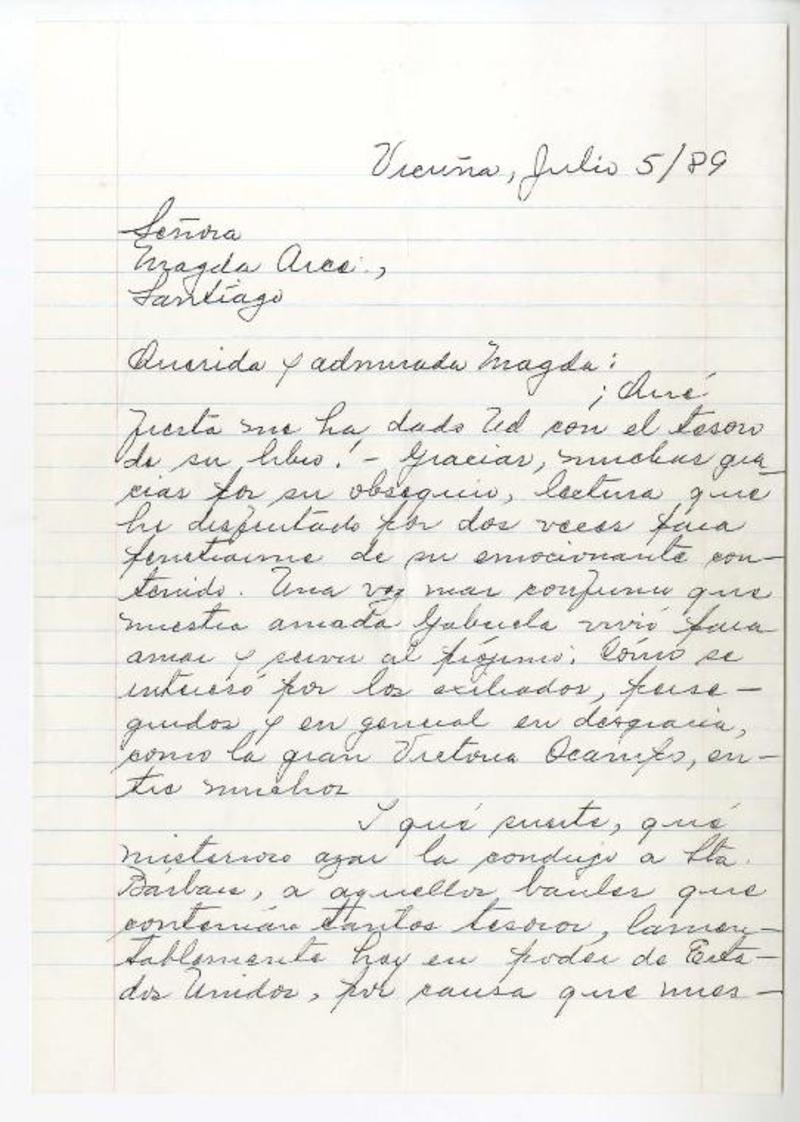 Vicuña, Julio 5/89
Señora
Magda Arce.,
Santiago
Querida y admirada Magda:
¡Qué
fiesta me ha dado Ud con el tesoro
de su libro! - Gracias, muchas gra_
cias por su obsequio, lectura que
he disfrutado por dos veces para
penetrarme de su emocionante con-
tenido. Una vez mas confirmo que
nuestra amada Gabriela vivió para
amar y servir al prójimo. Cómo se
interesó por los exiliados, perse-
guidos y en general en desgracia,
como la gran Victoria Ocampo, en-
tre muchos
I qué suerte, qué
misterioso azar la condujo a Sta.
Bárbara, a aquellos baules que
contenían tantos tesoros, lamen-
tablemente hoy en poder de Esta-
dos Unidos, por causa que nues-